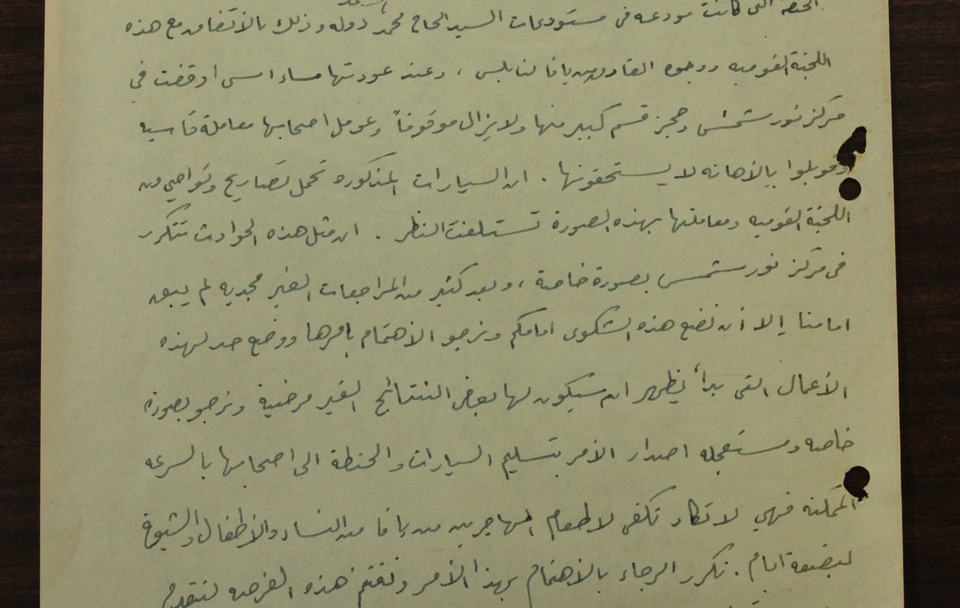 الحصه التى كانت مودعه فى مستودعات السيد الحاج محمد دوله وذلك بالاتفاق مع هذه
اللجنة القوميه ووجوه القادمين من يافا لنابلس ، وعند عودتها مساء امس اوقفت في
مركز نور شمس وحجز قسم كبير منها ولا يزال موقوفاً وعومل اصحابها معاملة قاسيه
وقوبلوا بالاهانه لا يستحقونها . ان السيارات المذكوره تحمل تصاريح وتواصي من
اللجنة القوميه ومعاملتها بهذه الصورة تستلفت النظر . ان مثل هذه الحوادث تتكرر
فى مركز نور شمس بصورة خاصة ، وبعد كثير من المراجعات الغير مجديه لم يبق
امامنا إلا أن نضع هذه الشكوى امامكم ونرجو الاهتمام بامرها ووضع حد لهذه
الأعمال التى بدأ يظهر انه سيكون لها بعض النتائج الغير مرضية ونرجو بصورة
خاصه ومستعجله اصدار الأمر بتسليم السيارات والحنطة الى اصحابها بالسرعه
الممكنه فهي لا تكاد تكفى لاطعام المهاجرين من يافا من النساء والاطفال والشيوخ
لبضعة ايام . نكرر الرجاء بالاهتمام بهذا الأمر ونغتنم هذه الفرصه لنتقدم